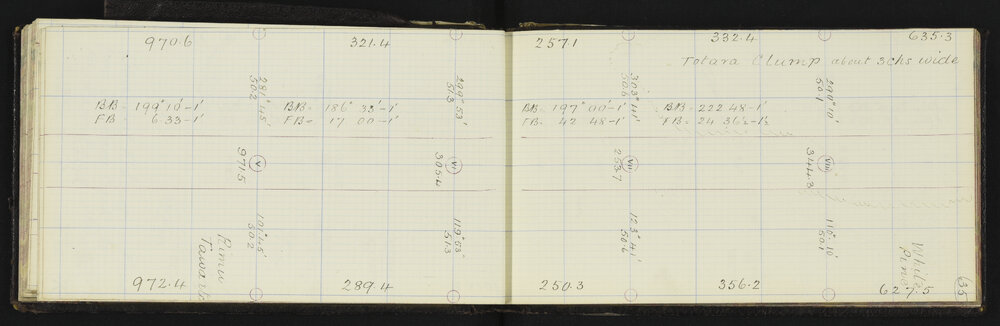 970.6 321.4
281° 45'
50.2
299° 53'
51.3
BB = 199° 10'-1'
FB = 6 33-1'
BB = 186° 33'-1'
FB = 17 00-1'
V
971.5
VI
305.4
101° 45'
50.2
119° 53'
51.3
Rimu
Tawa
972.4 289.4
257.1 332.4 635.3
Totara Clump about 3 chs wide
303° 41'
50.6
290° 10'
50.1
BB = 197° 00'-1'
FB = 42 48-1'
BB = 222 48-1'
FB = 24 36½-1½
VII
253.7
VIII
344.3
123° 41'
50.6
110° 10'
50.1
White
Pine
250.3 356.2 627.5
35